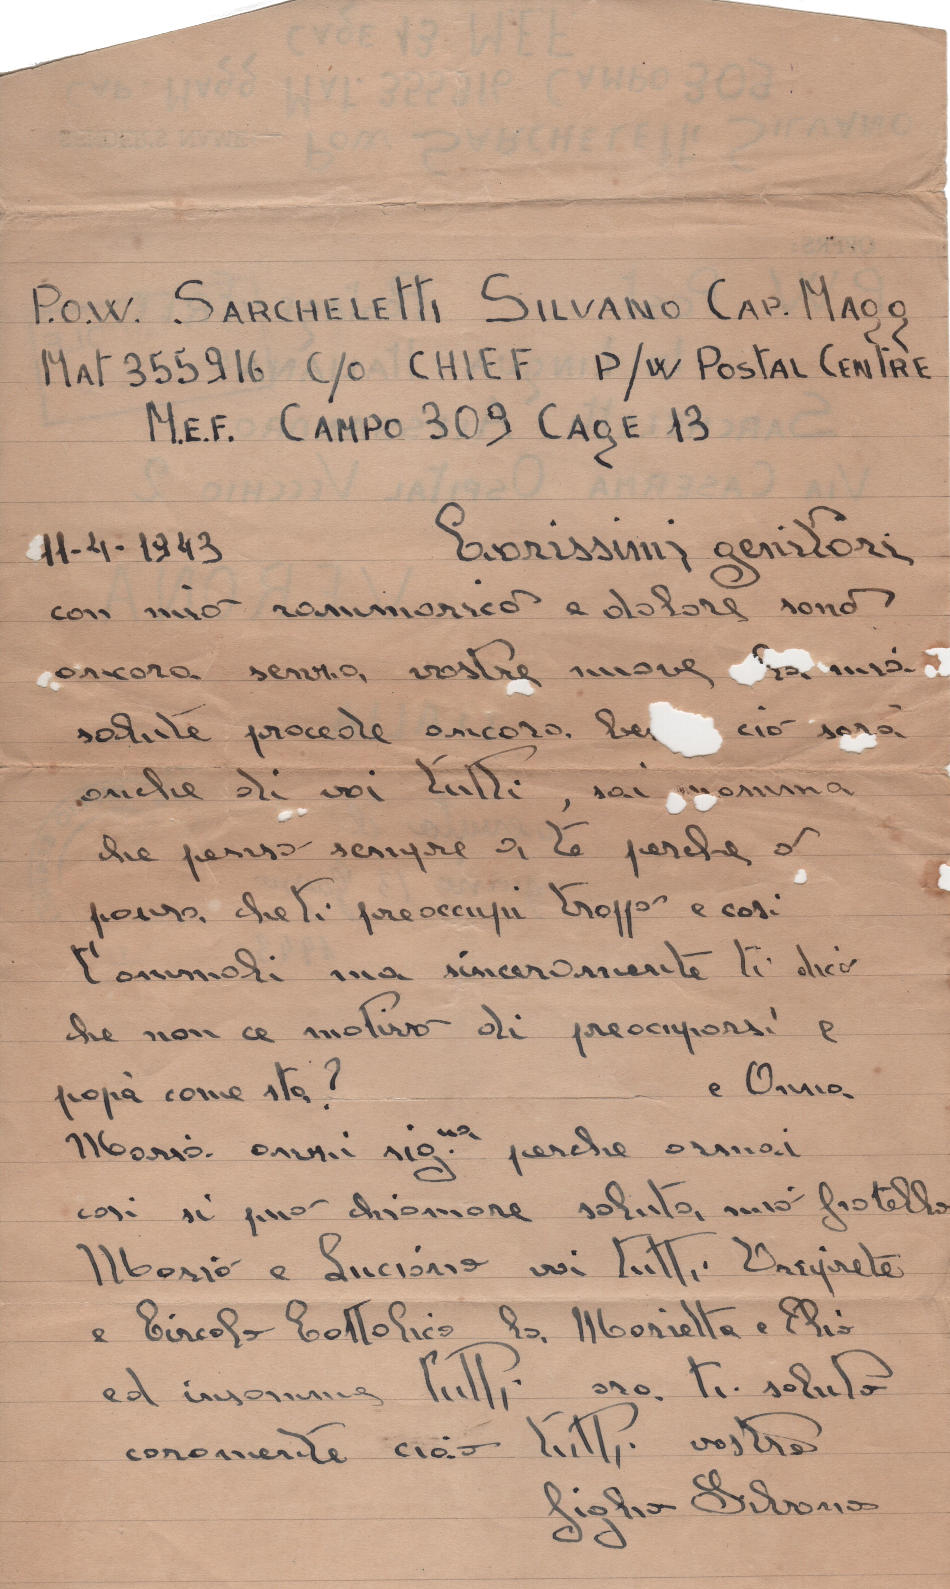 P.O.W. SARCHELETTI SILVANO CAP. MAGG
MAT 355916 C/O CHIEF P/W POSTAL CENTRE
M.E.F. CAMPO 309 CAGE 13
11-4-1943 Carissimi genitori
con mio rammarico e dolore sono
ancora senza vostre nuove la mia
salute procede ancora be ciò sarà
anche di voi tutti, sai mamma
che penso sempre a te perche o
paura che ti preoccupi troppo e cosi
t'ammali ma sinceramente ti dico
che non ce motivo di preocuparsi e
papà come sta? e Anna
Maria anzi sig.na perche ormai
cosi si può chiamare saluta, mio fratello
Mario e Luciano voi tutti
e Circolo Cattolico la Marietta e
ed insomma tutti ora ti saluto
caramente ciao tutti vostro
figlio Silvano